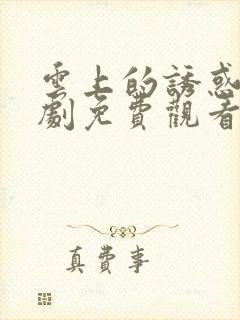 雲上的誘惑
劇免費觀看
真費事